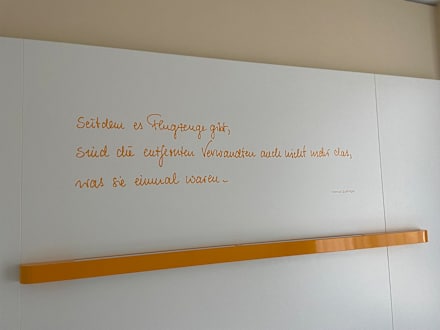 Seitdem es Flugzeuge gibt,
sind die entfernten Verwandten auch nicht mehr das,
was sie einmal waren.